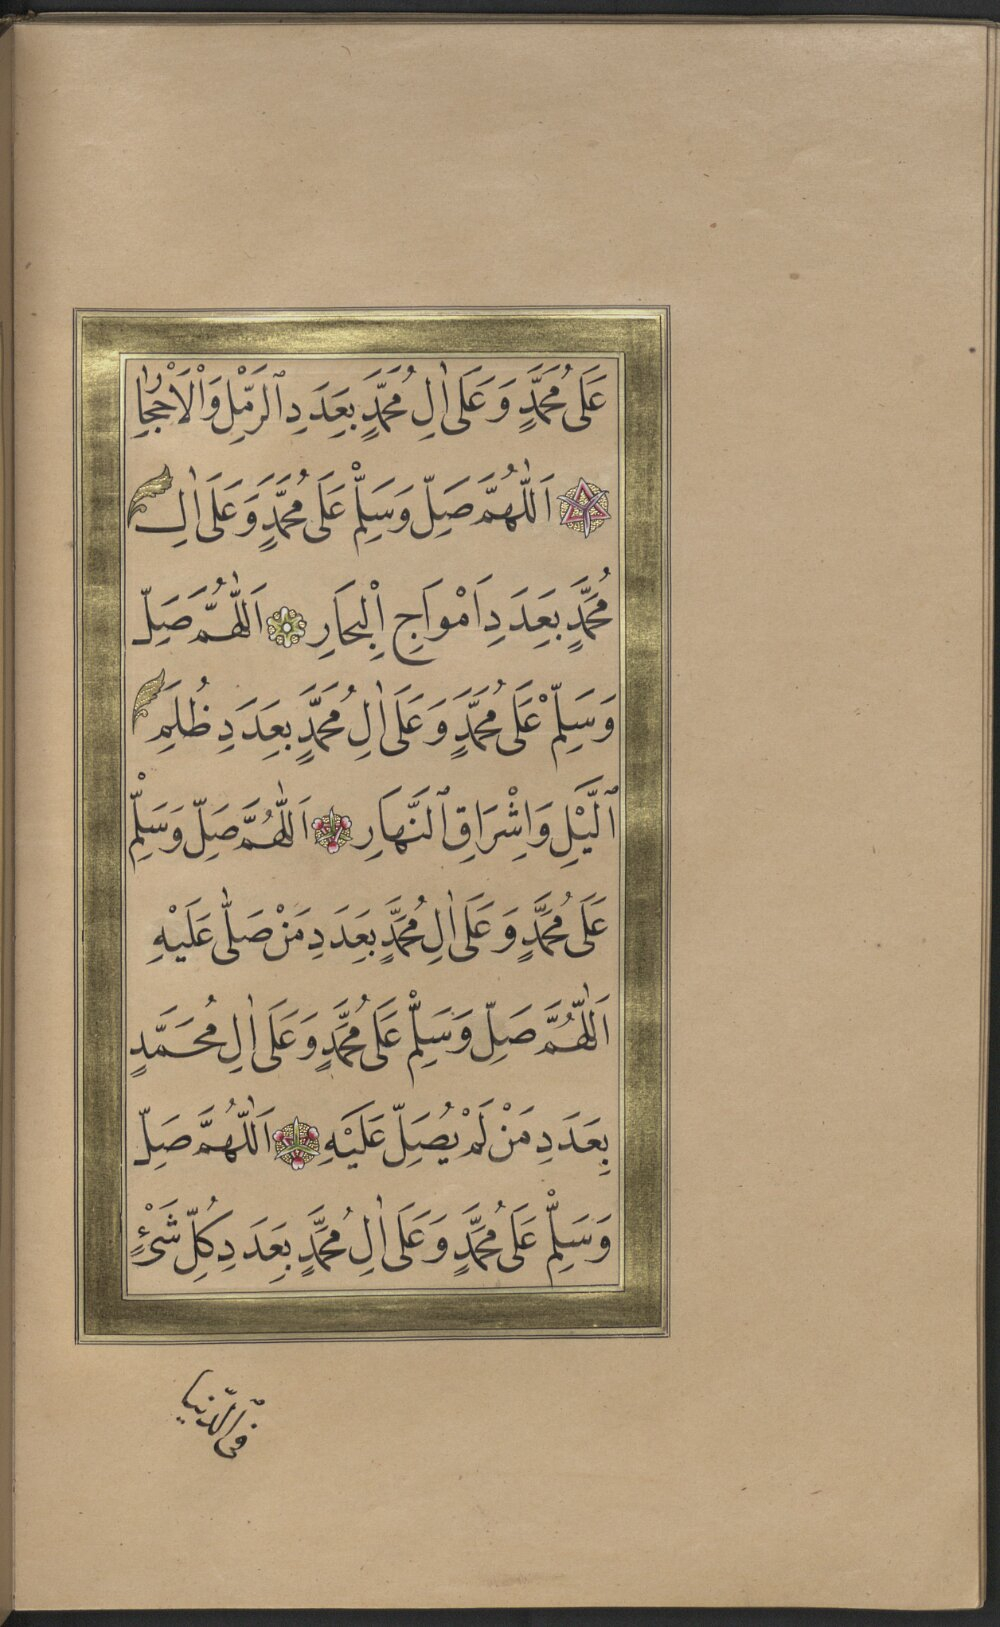 عَلَى مُحَمَّدٍ وَعَلَى اٰلِ مُحَمَّدٍ بِعَدَدِ ٱلرَّمْلِ وَٱلْاَحْجَارِ
اَللّٰهُمَّ صَلِّ وَسَلِّمْ عَلَى مُحَمَّدٍ وَعَلَى اٰلِ
مُحَمَّدٍ بِعَدَدِ اَمْوَاجِ اْلبِحَارِ اَللّٰهُمَّ صَلِّ
وَسَلِّمْ عَلَى مُحَمَّدٍ وَعَلَى اٰلِ مُحَمَّدٍ بِعَدَدِ ظُلَمِ
ٱللَّيْلِ وَاِشْرَاقِ ٱلنَّهَارِ اَللّٰهُمَّ صَلِّ وَسَلِّمْ
عَلَى مُحَمَّدٍ وَعَلَى اٰلِ مُحَمَّدٍ بِعَدَدِ مَنْ صَلّٰى عَلَيْهِ
اَللّٰهُمَّ صَلِّ وَسَلِّمْ عَلَى مُحَمَّدٍ وَعَلَى اٰلِ مُحَمَّدٍ
بِعَدَدِ مَنْ لَمْ يُصَلِّ عَلَيْهِ اَللّٰهُمَّ صَلِّ
وَسَلِّمْ عَلَى مُحَمَّدٍ وَعَلَى اٰلِ مُحَمَّدٍ بِعَدَدِ كُلِّ شَىْءٍ
فى الدّنيا